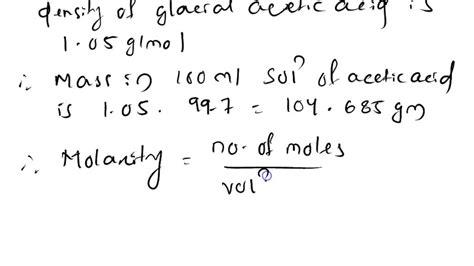 density of glacial acetic acid is
1.05 g/mol
∴ Mass in 100 ml sol^n of acetic acid
is 1.05 . 99.7 = 104.685 gm
∴ Molarity = no. of moles
vol^n